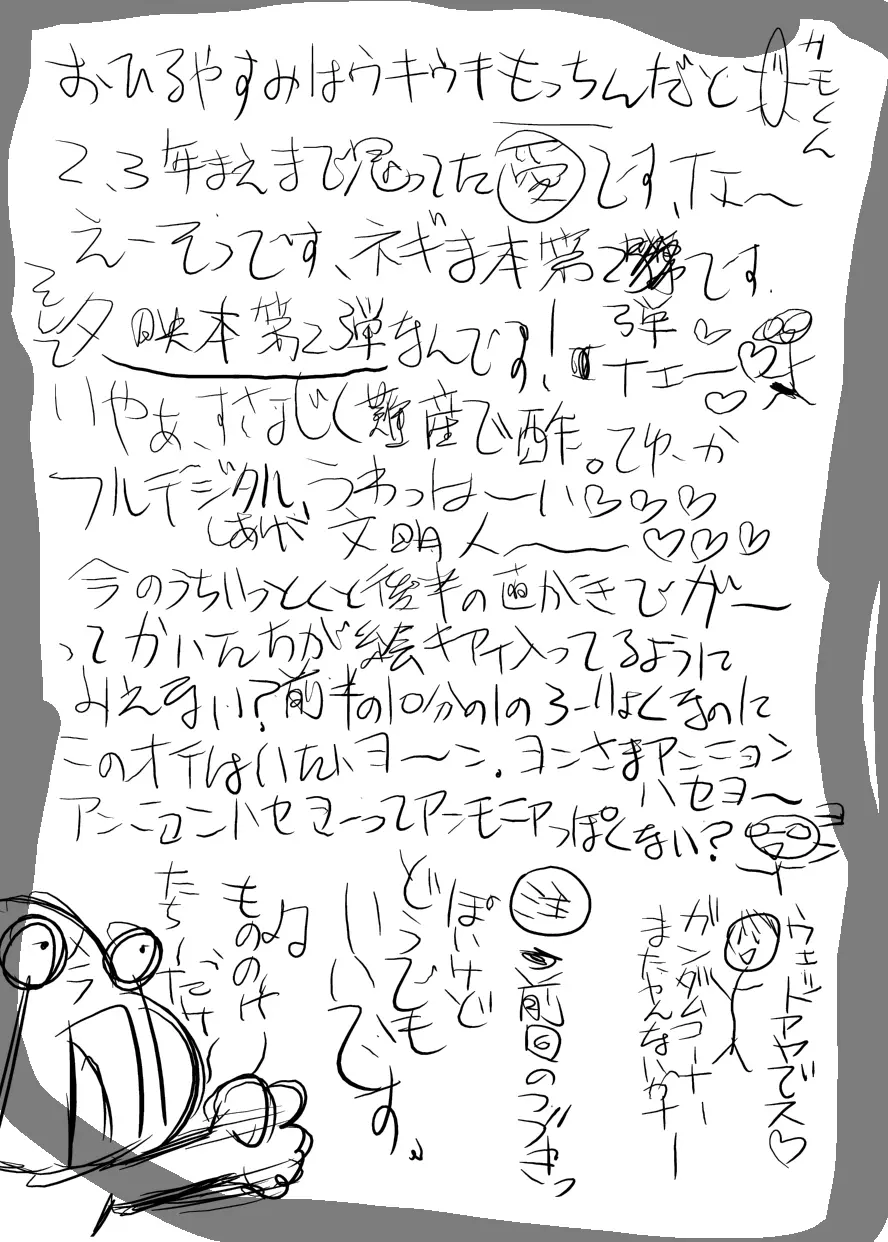 おひるやすみはウキウキもっちんだと
カモくん
2、3年まえまで思ってた愛です、イエ〜
えーそうです、ネギま本第2です。
弾
そして夕映本第2弾なんです!イエー
いやぁ、すさまじく難産で酢。てゆーか
フルデジタル、うわっはーい♡♡♡
しあげが 文明人〜♡♡♡
今のうちいっとくと後半の画がきでがー
ってかいたんちが絵キアイ入ってるように
みえまい?前半の10分の1のろーりょくなのに
このオチはいたいヨーン。ヨンさまアンニョン
ハセヨ〜
アンニョンハセヨーってアンモニアっぽくない?
ウェッドアヤでス♡
ガンダムコーナー
まだやんないかナー
前回のつづきっ
ぽいけど
どうでも
いいです。
もののけ
たち〜だけ